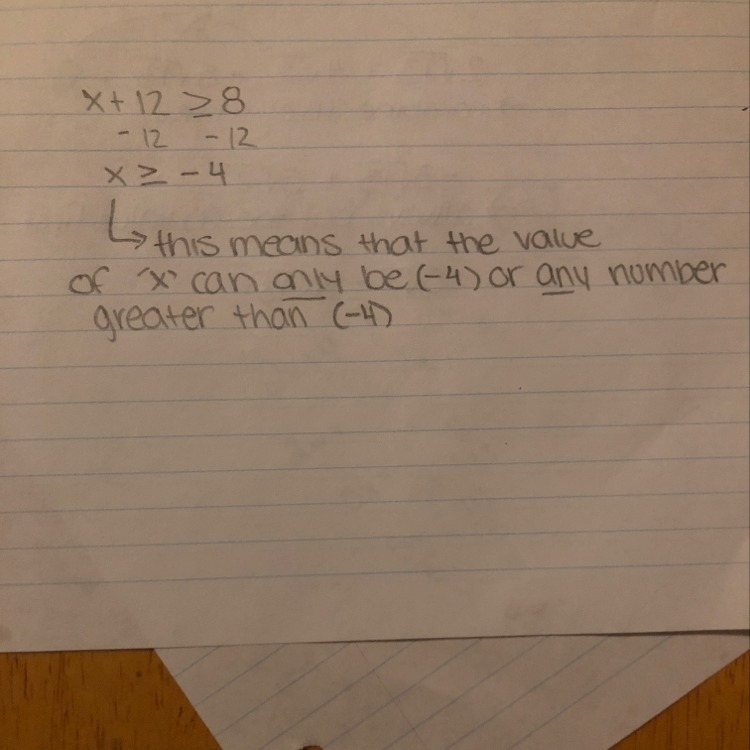 x + 12 ≥ 8
- 12 - 12
x ≥ - 4
↳ this means that the value
of 'x' can only be (-4) or any number
greater than (-4)